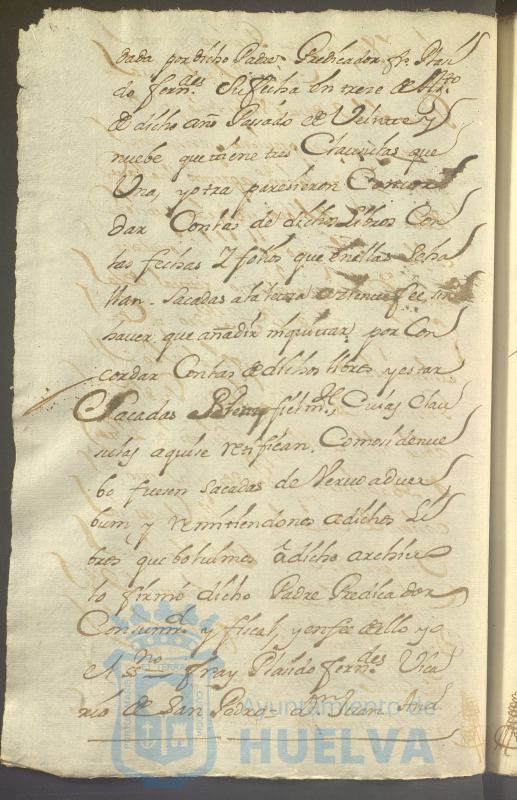 dada por dicho Padre Predicador fr. Plasi
do fern.des Su fecha en trese de
de dicho año Passado de Veinte y
nuebe que tiene tres Clausulas que
Una, y otra paresieron Concor
dar Con las de dichos Libros Con
las fechas Y folios que en ellas Se ha
llan. Sacadas a la letra fee, sin
haver que añadir ni quitar por Con
cordar Con las de dichos libros y estar
Sacadas Bien y fielm.te, Cuias Clau
sulas aqui se retifican. Como si de nue
bo fuesen Sacadas de Vervo adver
bum y remitiendonos a dichos Li
bros que bolvimos â dicho archivo
lo firmó dicho Padre Predicador
Consum.r y fiscal, y en fee de ello yo
el ss.no fray Plasido fern.des Vica
rio de San Pedro = D.n Juan And.
Ayuntamiento de
HUELVA